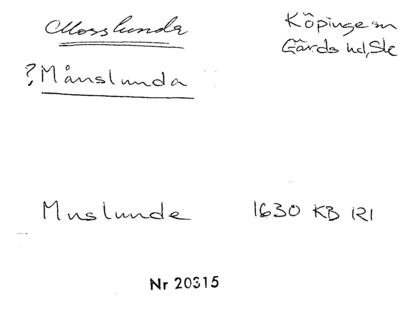 Mosslunda
Köpinge sn
Gärds hd, Sk
?Månslunda
Muslunde 1630 KB 121
Nr 20315